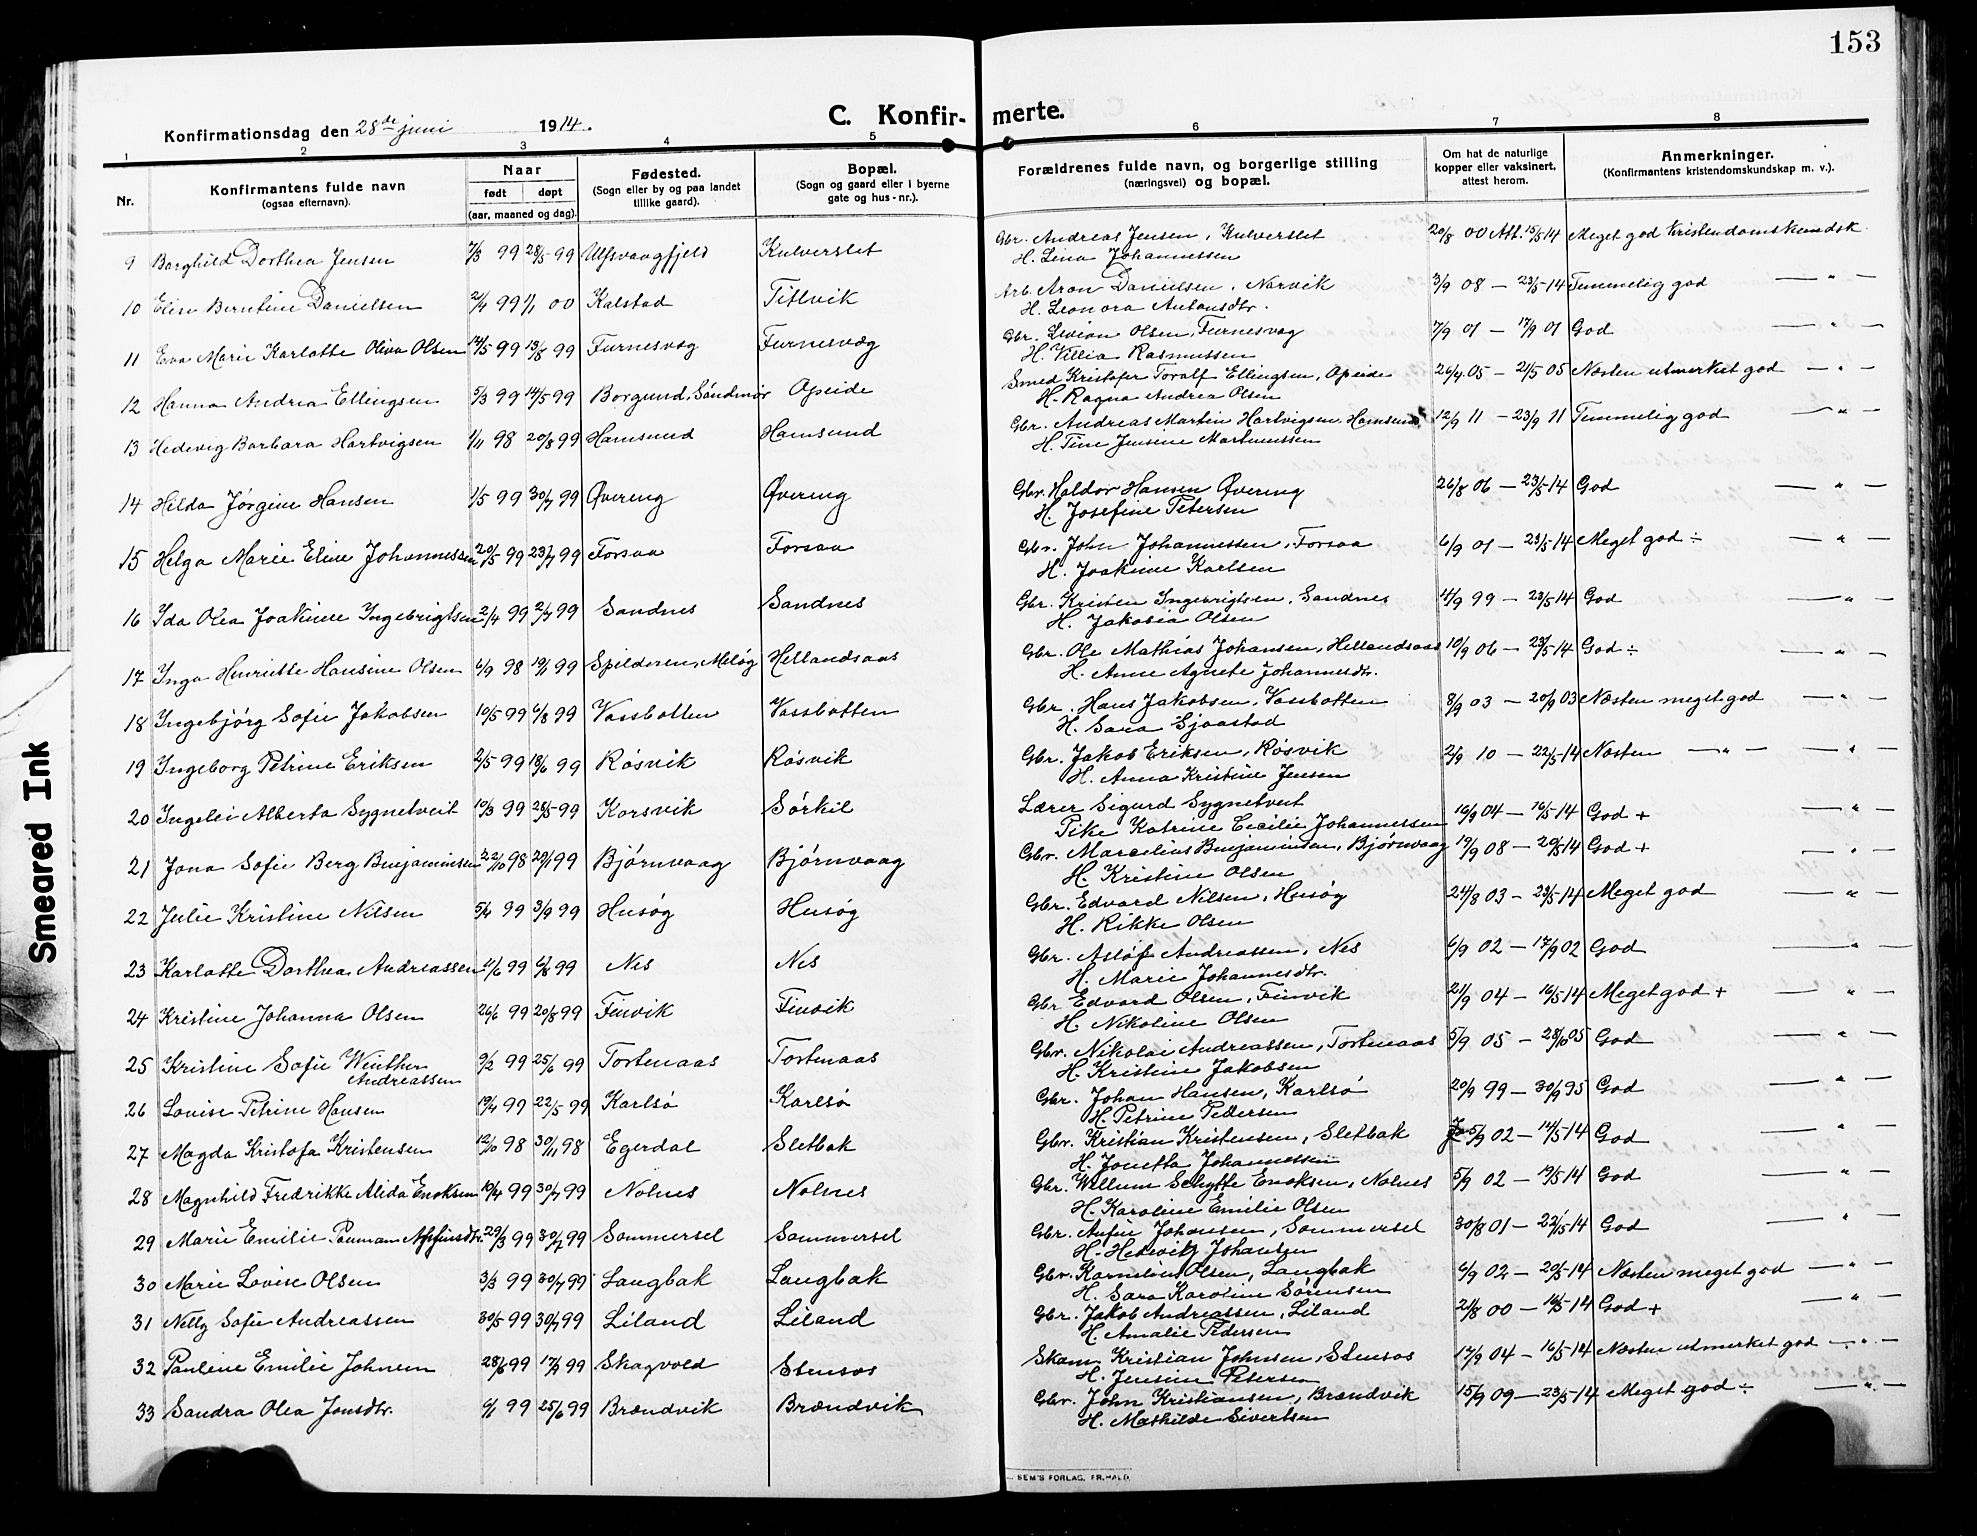 153
C. Konfir- merte.
Konfirmationsdag den 28de juni 1914.
1 2 3 4 5 6 7 8
Nr.
Konfirmantens fulde navn
(ogsaa efternavn).
Naar
født døpt
(aar, maaned og dag).
Fødested.
(Sogn eller by og paa landet
tillike gaard).
Bopæl.
(Sogn og gaard eller i byerne
gate og hus-nr.).
Forældrenes fulde navn, og borgerlige stilling
(næringsvei) og bopæl.
Om hat de naturlige
kopper eller vaksinert,
attest herom.
Anmerkninger.
(Konfirmantens kristendomskundskap m. v.).
9 Borghild Dorthea Jensen 7/3 99 28/5 99 Ulfsvaagfjeld Kulverslet Gbr. Andreas Jensen, Kulverslet 20/8 00 Att. 15/5 14 Meget god Kristendomskundsk.
H. Lina Johannessen
10 Elise Berntine Danielsen 2/4 99 1/1 00 Kalstad Titlvik Arb. Aron Danielsen, Narvik 3/9 08 – 23/5 14 Temmelig god — " —
H. Leonora Antonsdtr.
11 Eva Marie Karlotte Oliva Olsen 14/5 99 13/8 99 Furnesvag Furnesvæg Gbr. Livian Olsen, Furnesvag 7/9 01 – 17/9 01 God — " —
H. Villia Rasmussen
12 Hanna Andrea Ellingsen 5/3 99 14/5 99 Borgund, Søndmør Opeide Smed Kristofer Toralf Ellingsen, Opeide 26/4 05 – 21/5 05 Næsten utmerket god — " —
H. Ragna Andrea Olsen
13 Hedevig Barbara Hartvigsen 1/11 98 20/8 99 Hamsund Hamsund Gbr. Andreas Martin Hartvigsen, Hamsund 12/9 11 – 23/9 11 Temmelig god — " —
H. Tine Jensine Martinussen
14 Hilda Jørgine Hansen 1/5 99 30/7 99 Øvereng Øvereng Gbr. Haldor Hansen Øvereng 26/8 06 – 23/5 14 God — " —
H. Josefine Petersen
15 Helga Marie Eline Johannessen 20/5 99 23/7 99 Forsaa Forsaa Gbr. John Johannessen, Forsaa 6/9 01 – 23/5 14 Meget god ÷ — " —
H. Joakime Karlsen
16 Ida Olea Joakime Ingebrigtsen 2/4 99 2/7 99 Sandnes Sandnes Gbr. Kristen Ingebrigtsen, Sandnes 4/9 99 – 23/5 14 God — " —
H. Jakobia Olsen
17 Inga Henriette Hansine Olsen 6/9 98 19/1 99 Spilderen, Meløg Hellandsaas Gbr. Ole Mathias Johansen, Hellandsaas 10/9 06 – 23/5 14 God ÷ — " —
H. Anne Agnete Johannesdtr.
18 Ingebjørg Sofie Jakobsen 10/5 99 6/8 99 Vassbotten Vassbotten Gbr. Hans Jakobsen, Vassbotten 8/9 03 – 20/9 03 Næsten meget god — " —
H. Sara Sjaastad
19 Ingeborg Petrine Eriksen 2/5 99 18/6 99 Røsvik Røsvik Gbr. Jakob Eriksen, Røsvik 2/9 10 – 22/5 14 Næsten — " — — " —
H. Anna Kristine Jensen
20 Ingelei Alberta Sygnetveit 10/3 99 28/5 99 Korsvik Sørkil Lærer Sigurd Sygnetveit 16/9 04 – 16/5 14 God + — " —
Pike Katrine Cecilie Johannessen
21 Jona Sofie Berg Benjaminsen 22/10 98 29/1 99 Bjørnvaag Bjørnvaag Gbr. Marcelius Benjaminsen, Bjørnvaag 17/9 08 – 20/5 14 God + — " —
H. Kristine Olsen
22 Julie Kristine Nilsen 5/4 99 3/9 99 Husøg Husøg Gbr. Edvard Nilsen, Husøg 24/8 03 – 23/5 14 Meget god — " —
H. Rikke Olsen
23 Karlotte Dorthea Andreassen 11/6 99 6/8 99 Nes Nes Gbr. Asløf Andreassen, Nes 6/9 02 – 17/9 02 God — " —
H. Marie Johannesdtr.
24 Kristine Johanna Olsen 26/6 99 20/8 99 Finvik Finvik Gbr. Edvard Olsen, Finvik 21/9 04 – 16/5 14 Meget god + — " —
H. Nikoline Olsen
25 Kristine Sofie Winther 9/2 99 25/6 99 Tortenaas Tortenaas Gbr. Nikolai Andreassen, Tortenaas 5/9 05 – 28/10 05 God — " —
Andreassen H. Kristine Jakobsen
26 Lovise Petrine Hansen 19/4 99 22/5 99 Karlsø Karlsø Gbr. Johan Hansen, Karlsø 20/9 99 – 30/9 95 God — " —
H. Petrine Pedersen
27 Magda Kristofa Kristensen 12/10 98 30/11 98 Egerdal Sletbak Gbr. Kristian Kristensen, Sletbak 5/9 02 – 14/5 14 God — " —
H. Jonetta Johannessen
28 Magnhild Fredrikke Alida Enoksen 10/4 99 30/7 99 Nolnes Nolnes Gbr. Willum Schytte Enoksen, Nolnes 5/9 02 – 19/5 14 God — " —
H. Karoline Emilie Olsen
29 Marie Emilie 29/3 99 30/7 99 Sommersel Sommersel Gbr. Johansen, Sommersel 30/8 01 – 22/5 14 God — " —
H. Hedevig Johansen
30 Marie Lovise Olsen 3/3 99 30/7 99 Langbak Langbak Gbr. Kornelius Olsen, Langbak 6/9 02 – 20/5 14 Næsten meget god — " —
H. Sara Karoline Sørensen
31 Nelly Sofie Andreassen 30/5 99 30/7 99 Liland Liland Gbr. Jakob Andreassen, Liland 21/8 00 – 16/5 14 God + — " —
H. Amalie Pedersen
32 Pauline Emilie Johnsen 28/6 99 17/9 99 Skagvold Stensos Skom. Kristian Johnsen, Stensos 17/9 04 – 16/5 14 Næsten utmerket god — " —
H. Jensine Petersen
33 Sandra Olea Jonsdtr. 6/1 99 25/6 99 Brændvik Brændvik Gbr. John Kristiansen, Brændvik 15/9 09 – 23/5 14 Meget god ÷ — " —
H. Mathilde Sivertsen
SEM'S FORLAG, FR.HALD.
Smeared Ink